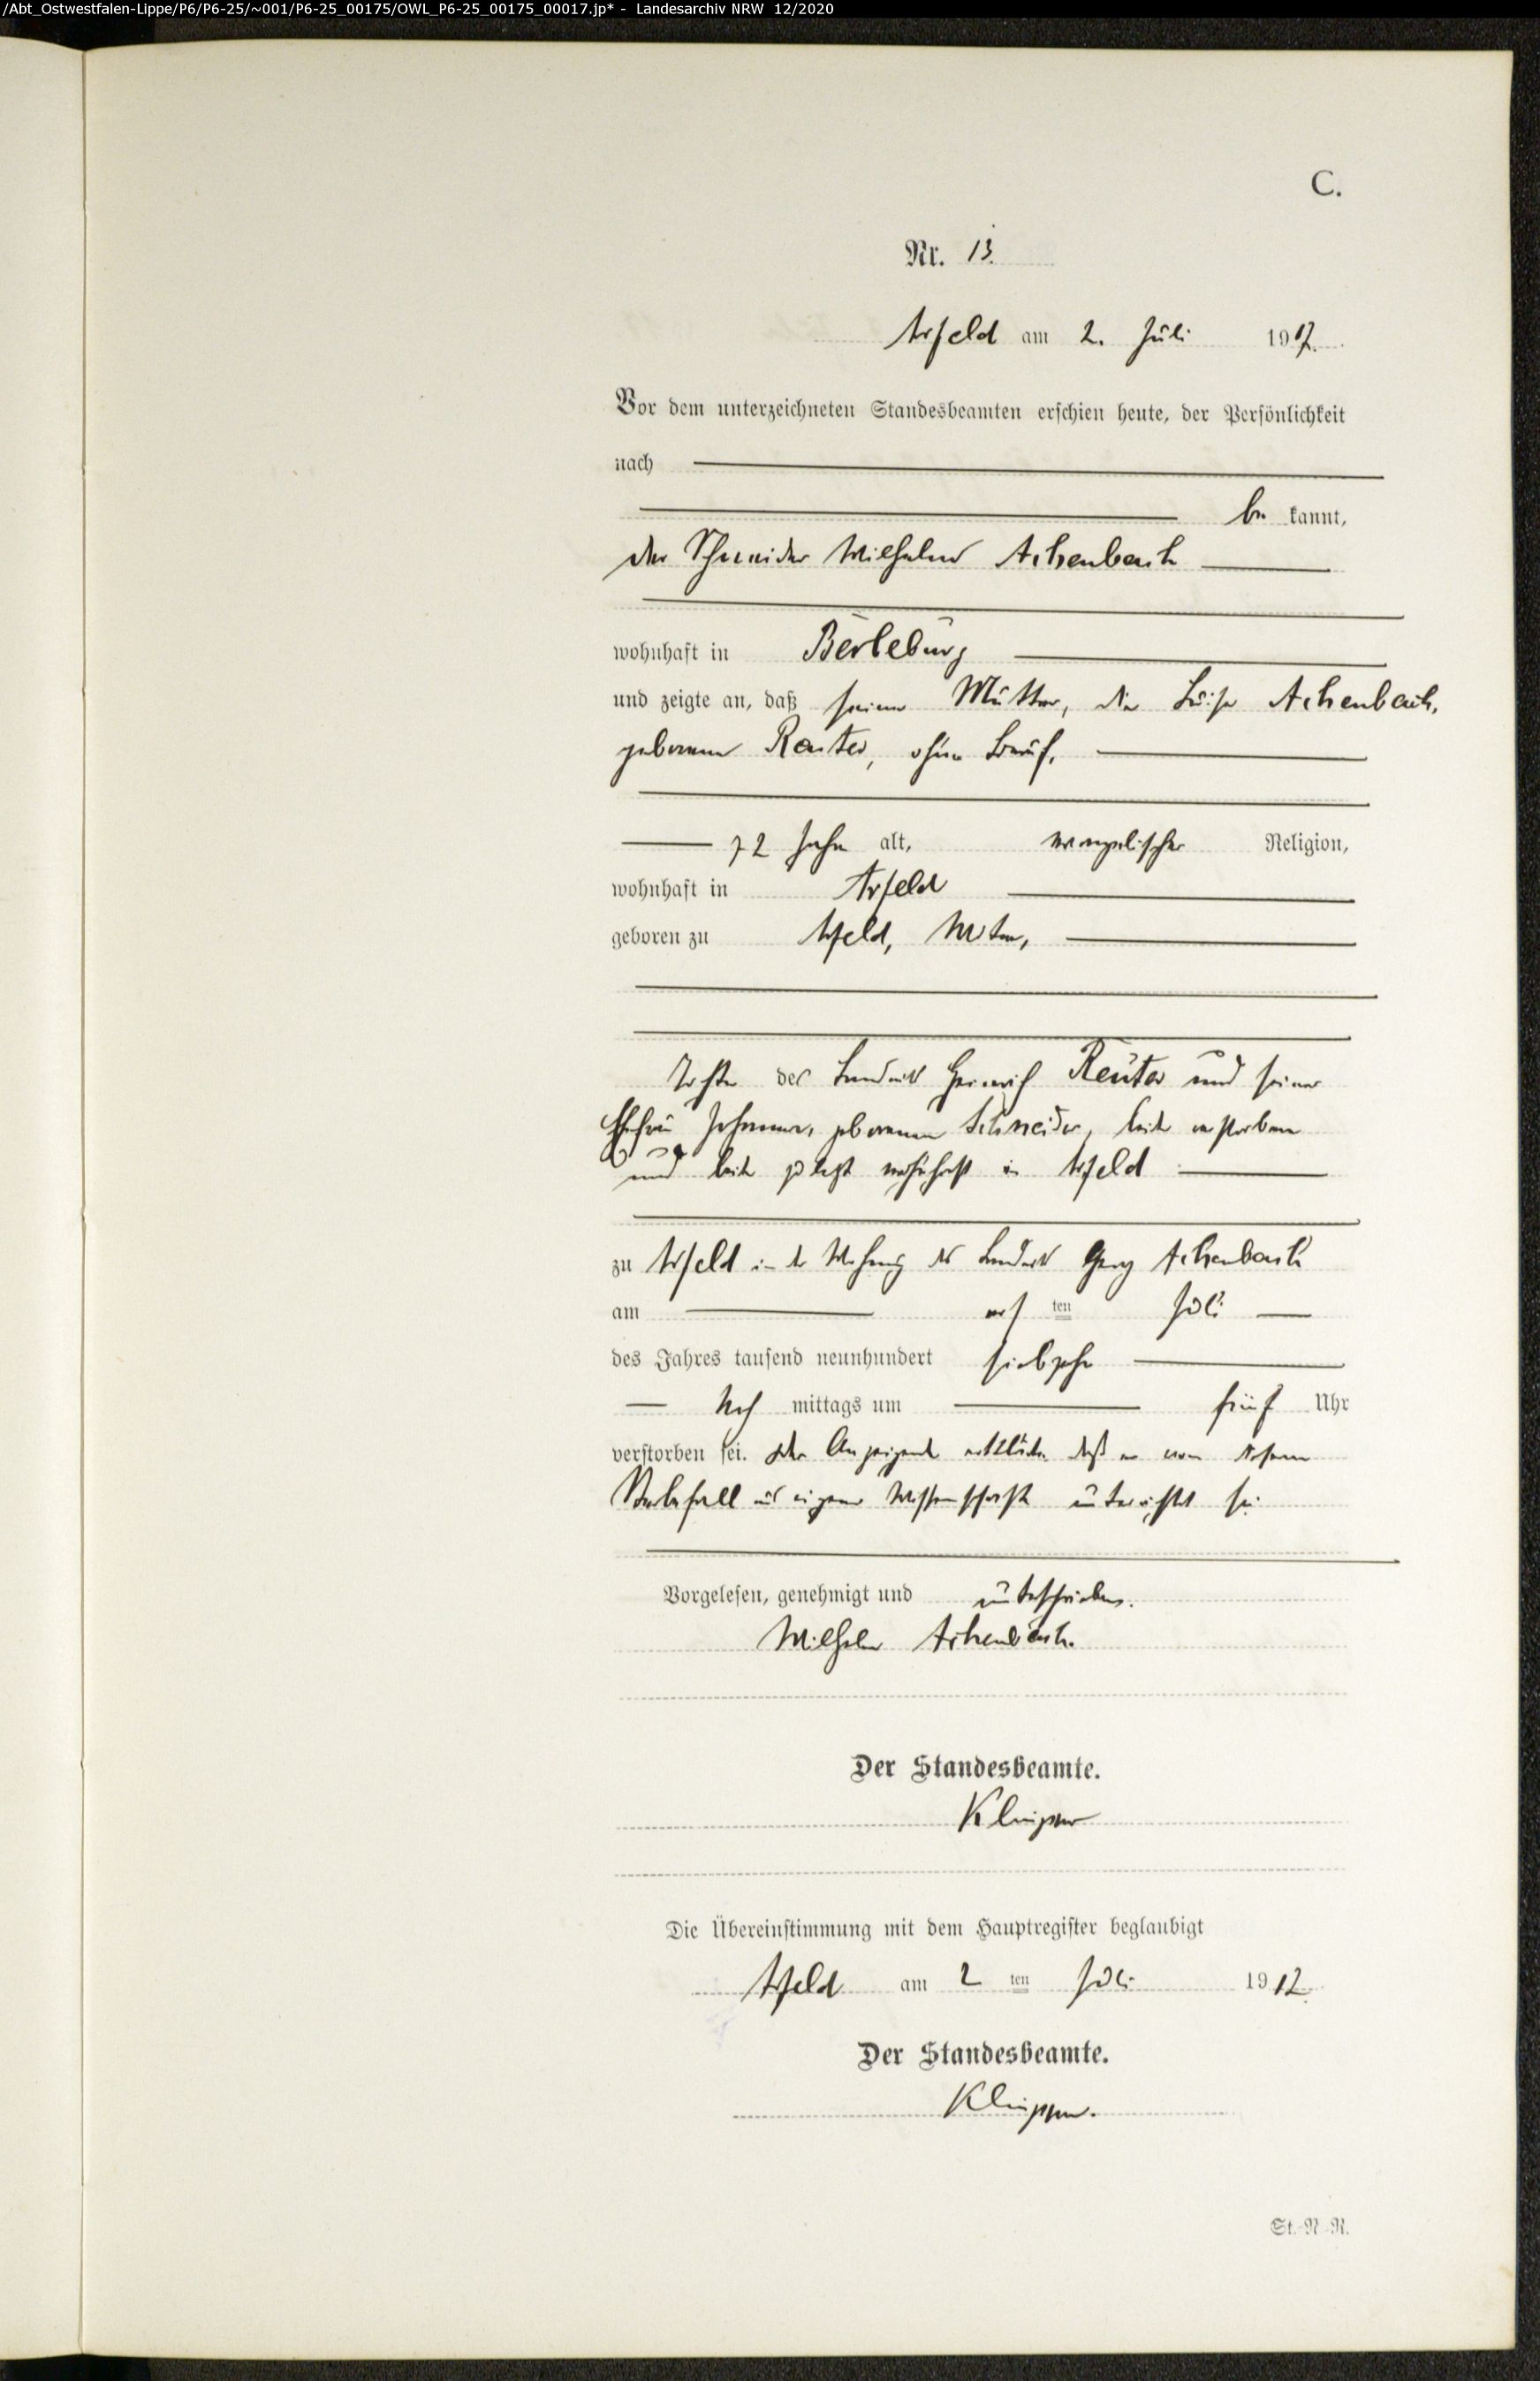 /Abt_Ostwestfalen-Lippe/P6/P6-25/~001/P6-25_00175/OWL_P6-25_00175_00017.jp* - Landesarchiv NRW 12/2020
C.
Nr. 13.
Arfeld am 2. Juli 1917.
Vor dem unterzeichneten Standesbeamten erschien heute, der Persönlichkeit
nach
be kannt,
der Schneider Wilhelm Achenbach
wohnhaft in Berleburg
und zeigte an, daß seine Mutter, die Luise Achenbach,
geborene Reuter, ohne Beruf,
72 Jahre alt, evangelischer Religion,
wohnhaft in Arfeld
geboren zu Arfeld, Witwe,
Tochter des Landwirt Heinrich Reuter und seiner
Ehefrau Johanna, geborenen Schneider, beide verstorben
und beide zuletzt wohnhaft in Arfeld
zu Arfeld in der Wohnung des Landwirt Georg Achenbach
am ersten Juli
des Jahres tausend neunhundert siebzehn
Nach mittags um fünf Uhr
verstorben sei. Der Anzeigende erklärte, daß er von diesem
Sterbefall aus eigener Wissenschaft unterrichtet sei
Vorgelesen, genehmigt und unterschrieben.
Wilhelm Achenbach.
Der Standesbeamte.
Die Übereinstimmung mit dem Hauptregister beglaubigt
Arfeld am 2 ten Juli 1917.
Der Standesbeamte.
St.-N-R.